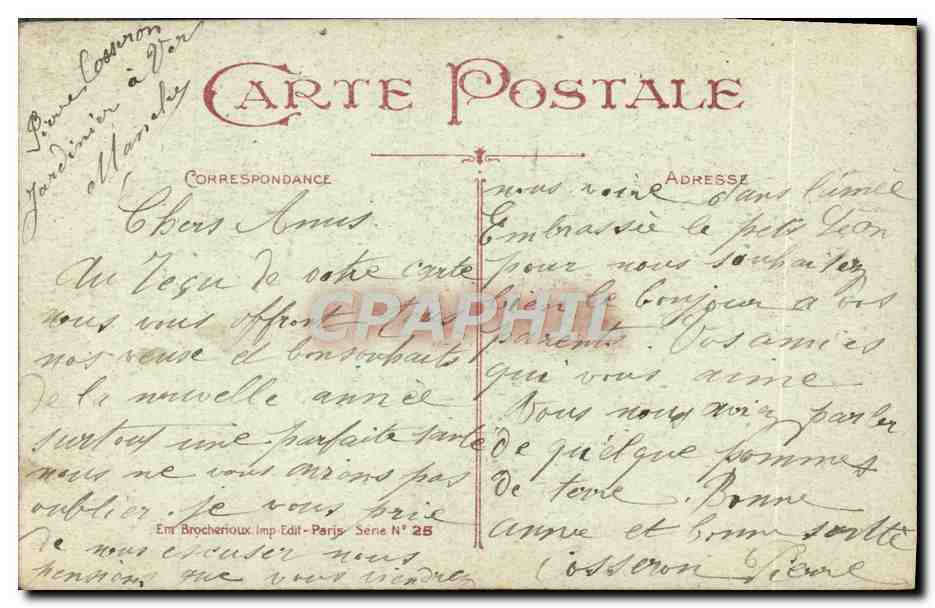 Pierre Cosseron
Jardinier à Ver
Manche
CARTE POSTALE
CORRESPONDANCE
ADRESSE
Chers Amis
Au reçu de votre carte
nous vous offront tous
nos veuse et bonsouhaits
de la nouvelle année
surtout une parfaite santé
nous ne vous avions pas
oublier. je vous prie
de nous escuser nous
pensions que vous viendrez
nous voire dans l'
Embrassée le petit Léon
pour nous souhaiter
bien le bonjour a vos
parents. Vos amies
qui vous aime
Vous nous aviez parler
de quelque pommes
de terre. Bonne
année et bonne santé
Cosseron Pierre
Em Brocherioux Imp-Edit-Paris Série N° 25
CPAPHIL